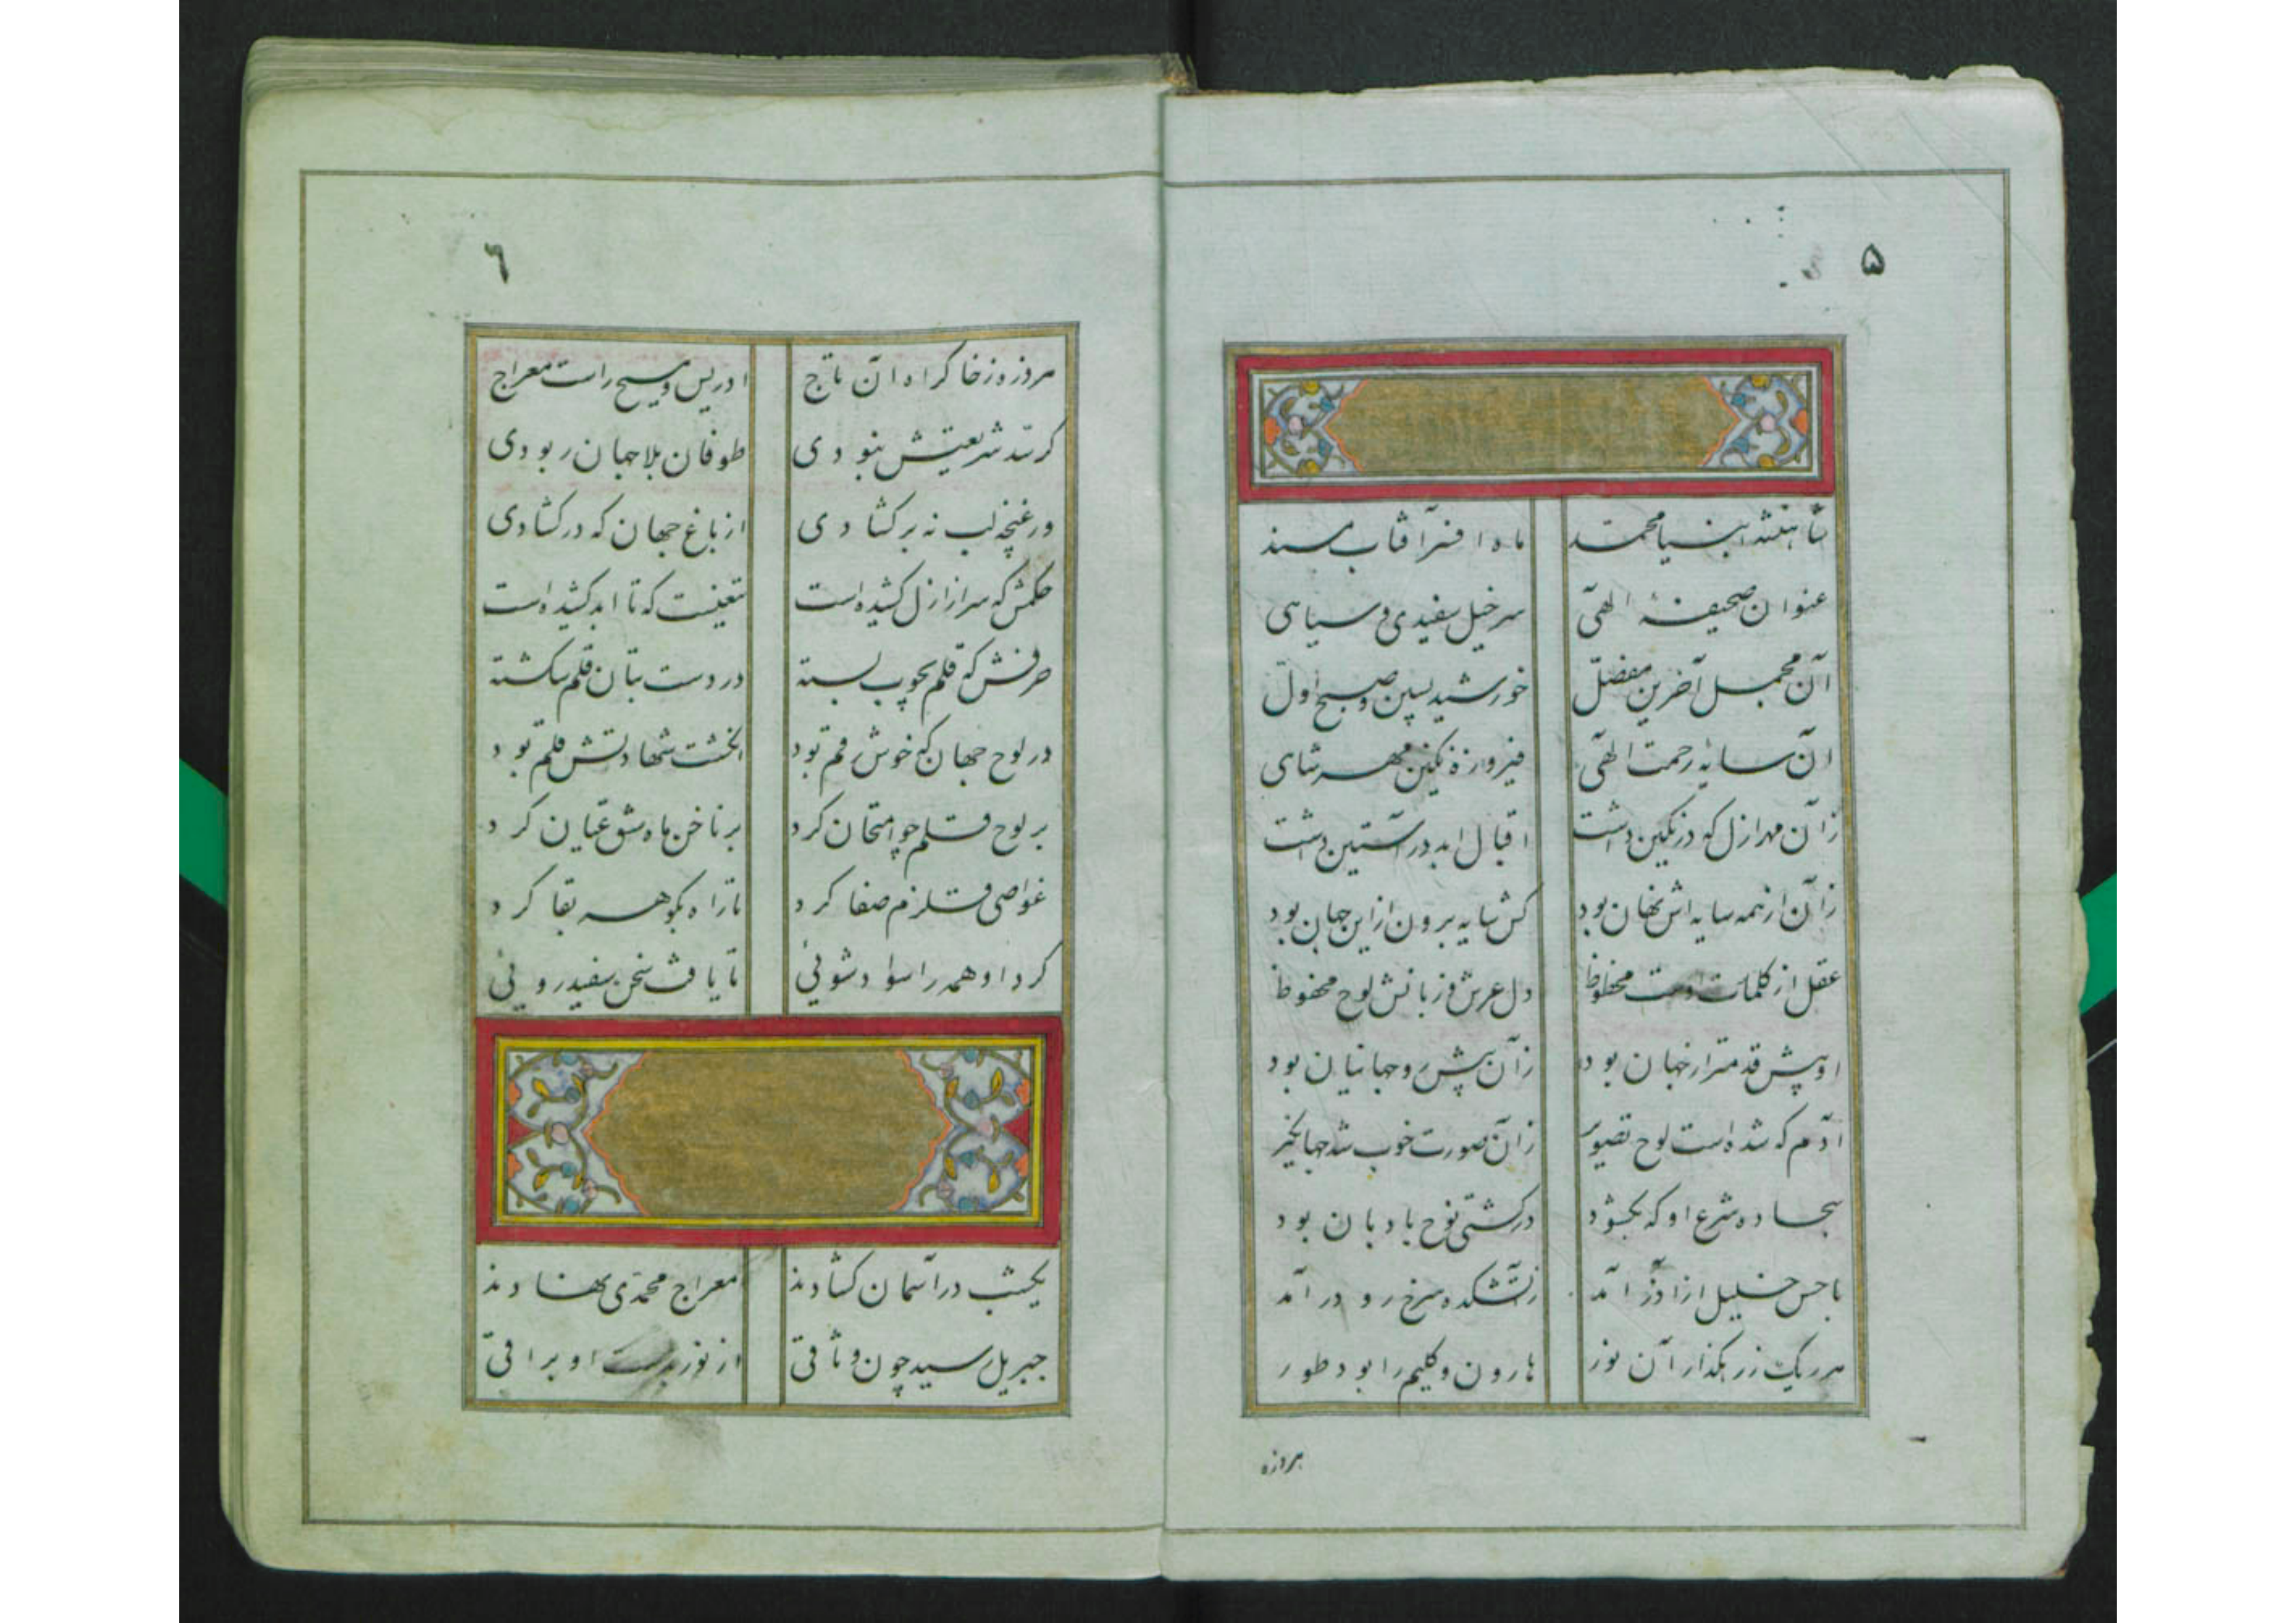 ۵
شاهنشه انبیا محمد ماه افسر آفتاب مسند
عنوان صحیفهٔ الهی سرخیل سفیدی و سیاهی
آن مجمل آخرین مفصل خورشید پسین و صبح اول
آن سایه رحمت الهی فیروزه نگین مهر شاهی
زآن مهر ازل که در نگین داشت اقبال ابد در آستین داشت
زآن از همه سایه اش نهان بود کش سایه برون از این جهان بود
عقل از کلمات اوست محظوظ دل عرش و زبانش لوح محفوظ
او پیش قدمتر از جهان بود زآن پیش رو جهانیان بود
آدم که شده است لوح تصویر زآن صورت خوب شد جهانگیر
سجاده شرع او که بگشود در کشتی نوح بادبان بود
با حسن خلیل از آذر آمد زآتشکده سرخ رو در آمد
هر یک ز رهگذار آن نور هارون و کلیم را بود طور
هر دزه
۶
هر دزه ز خاک راه آن تاج ادریس و مسیح راست معراج
گر سد شریعتش نبودی طوفان بلا جهان ربودی
ور غنچه لب نه بر گشادی از باغ جهان که در گشادی
حکمش که سر از ازل کشیده است تیغیست که تا ابد کشیده است
حرفش که قلم بچوب بسته در دست بتان قلم شکسته
در لوح جهان که خوش رقم بود انگشت شهادتش قلم بود
بر لوح قلم چو امتحان کرد بر ناخن ماه شق عیان کرد
غواصی قلزم صفا کرد تا راه بگوهر بقا کرد
کرد او همه را سواد شویی تا یافت سخن سفید رویی
یکشب در آسمان گشادند معراج محمدی نهادند
جبریل رسید چون وثاقی از نور بدست او براقی